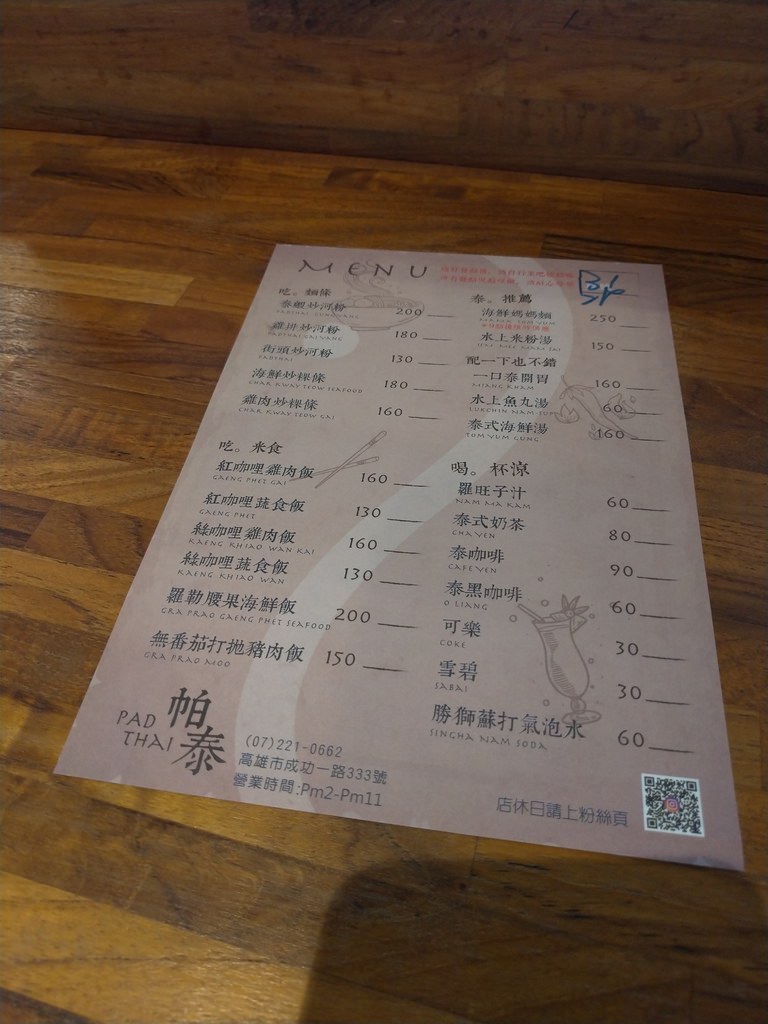 MENU
吃。麵條
泰蝦炒河粉 200
雞排炒河粉 180
PADTHAI GAI VANG
街頭炒河粉 130
PADTHAI
海鮮炒粿條 180
CHAR KWAY TEOW SEAFOOD
雞肉炒粿條 160
CHAR KWAY TEOW GAI
吃。米食
紅咖哩雞肉飯 160
GAENG PHET GAI
紅咖哩蔬食飯 130
GAENG PHET
綠咖哩雞肉飯 160
KAENG KHIAO WAN KAI
綠咖哩蔬食飯 130
KAENG KHIAO WAN
羅勒腰果海鮮飯 200
GRA PRAO GAENG PHET SEAFOOD
無番茄打拋豬肉飯 150
GRA PRAO MOO
泰。推薦
海鮮媽媽麵 250
水上米粉湯 150
配一下也不錯
一口泰開胃 160
MIANG KHAM
水上魚丸湯 60
LUKCHIN NAM
泰式海鮮湯 160
TOM YUM GUNG
喝。杯涼
羅旺子汁 60
NAM MA KAM
泰式奶茶 80
CHA YEN
泰咖啡 90
CAFE YEN
泰黑咖啡 60
O LIANG
可樂 30
COKE
雪碧 30
SABAI
勝獅蘇打氣泡水 60
SINGHA NAM SODA
PAD THAI
帕泰
(07)221-0662
高雄市成功一路333號
營業時間:Pm2-Pm11
店休日請上粉絲頁